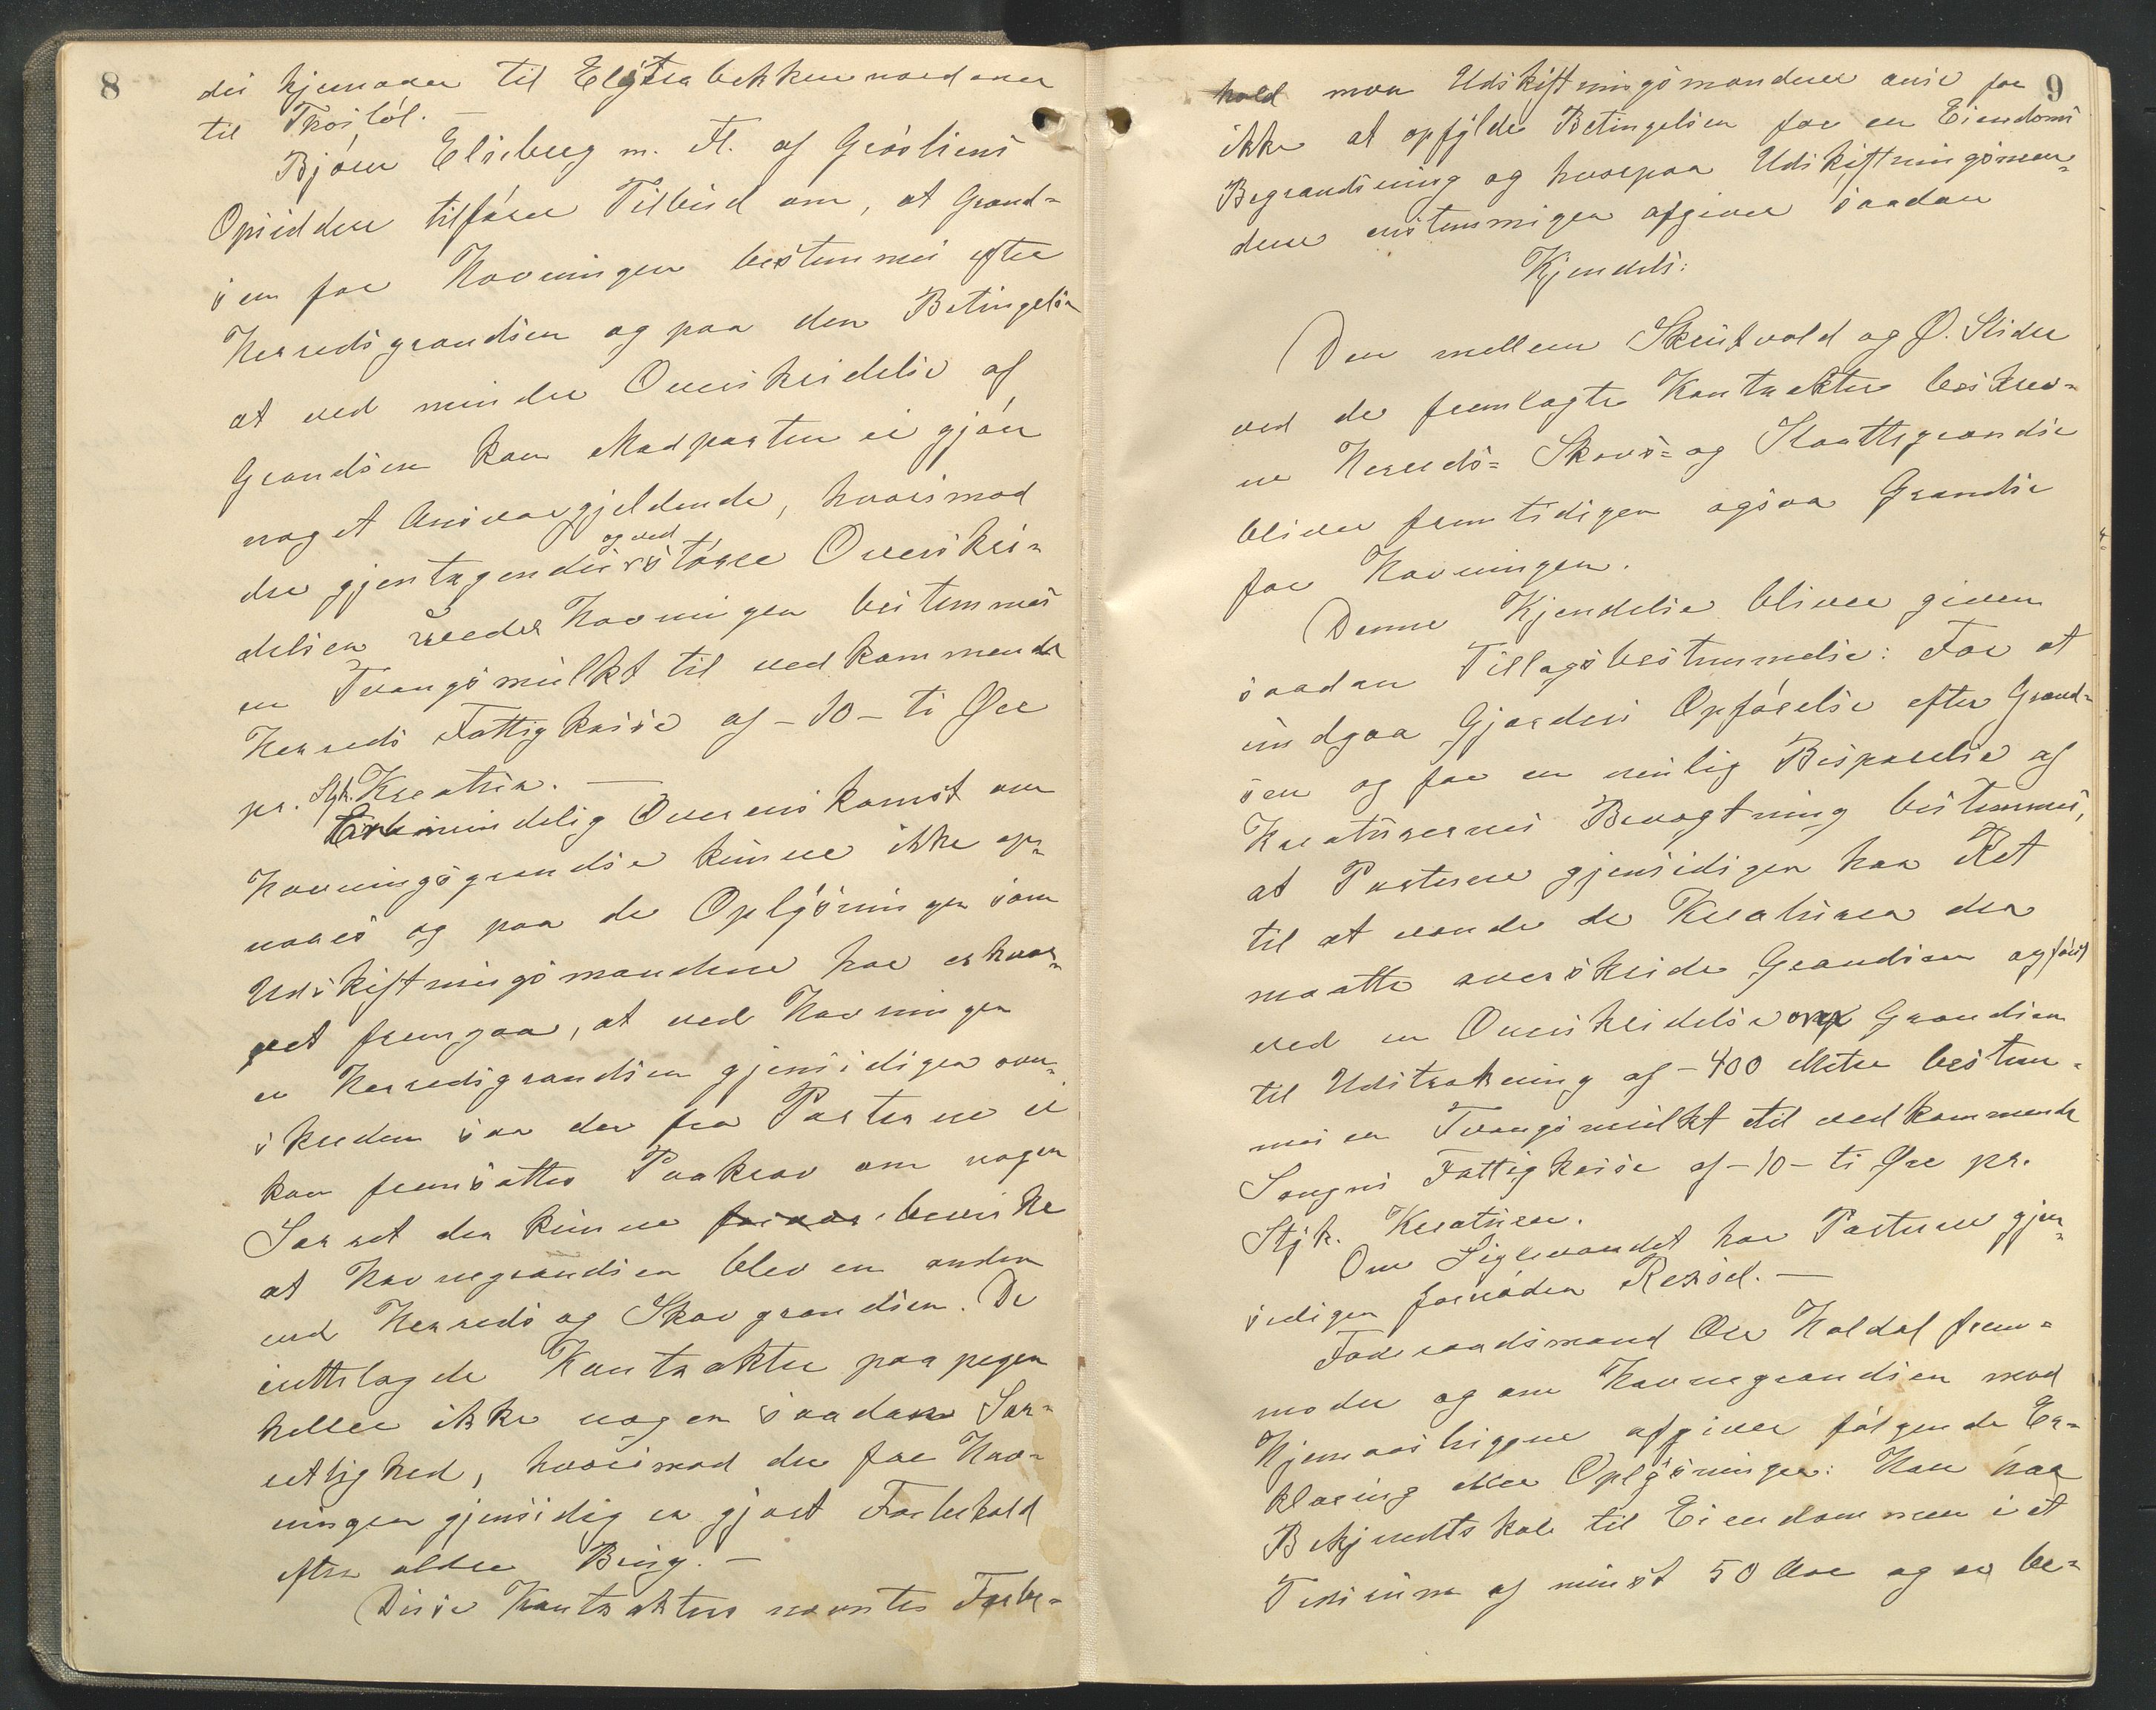 8
des hjemover til Elgtrabekken nordover
til Trøitøl. —
Bjørn Elsberg m. Fl. af Gråsliens
Opsiddere tilfører Tilbud om, at Grænd-
sen for Havningen bestemmes efter
Herredsgrændsen og paa den Betingelse
at ved mindre Overskridelse af
Grændsen kan Modparten ei gjøre
noget Ansvar gjeldende, hvorimod
der gjentagendes og ved større Overskri-
delsen Havningen bestemmes
en Tvangsmulkt til vedkommende
Herreds Fattigkasse af -10- ti Øre
pr. Styk. Kreatur. —
En mindelig Overenskomst om
Havningsgrændse kunne ikke op-
naaes og paa de Oplysninger som
Udskiftningsmændene har erhver-
vet fremgaar, at ved Havningen
er Herredsgrændsen gjensidigen over-
skreden saa der fra Parterne ei
kan fremsættes Paakrav om nogen
Særret der kunne bevirke
at Havnegrændsen blev en anden
end Herreds og Skovgrændsen. De
inttslagde Kontrakter paapeger
heller ikke nogen saadan Sær-
retlighed, hvorimod der for Hav-
ningen gjensidig er gjort Forbehold
efter ældre Brug. —
Disse Kontrakters nævnte Forbe-
9
hold maa Udskiftningsmændene anse for
ikke at opfylde Betingelsen for en Eiendoms
Begrændsning og hvorpaa Udskiftningsmæn-
dene enstemmigen afgiver saadan
Kjendels:
Den mellem Skrutvold og Ø. Slidre
ved de fremlagte Kontrakter beskrev-
ne Herreds- Skovs- og Slaattegrændse
bliver fremtidigen ogsaa Grændse
for Havningen.
Denne Kjendelse bliver given
saadan Tillægsbestemmelse: For at
undgaa Gjærdes Opførelse efter Grænd-
sen og for en rimlig Besparelse af
Kreaturernes Bevogtning bestemmes,
at Parterne gjensidigen har Ret
til at vende de Kreaturer der
maatte overskride Grændsen og først
ved en Overskridelse af Grændsen
til Udstrækning af -400 Meter bestem-
mes en Tvangsmulkt til vedkommende
Sogns Fattigkasse af -10- ti Øre pr.
Styk. Kreaturer.
Om Siglevandet har Parterne gjen-
sidigen fornøden Ressel. —
Føderaadsmand Ole Haldal frem-
møder og om Havnegrændsen mod
Hjemaasbyggene afgiver følgende Er-
klæring eller Oplysninger: Han har
Bekjendtskab til Eiendommen i et
Tidsrum af minst 50 Aar og er be-